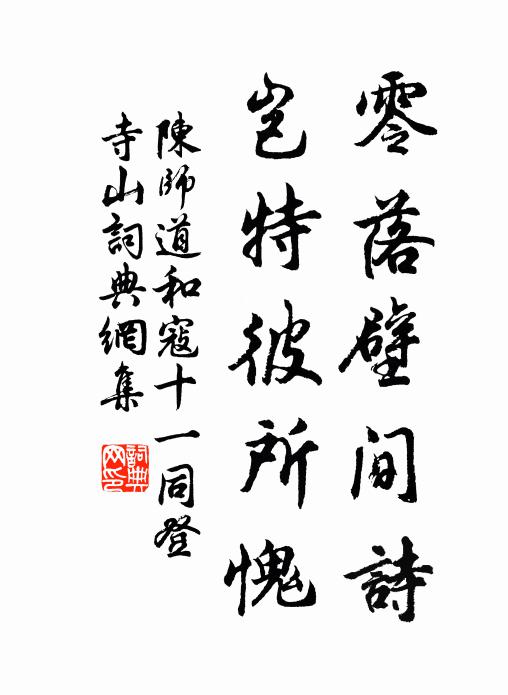 零落壁間詩
豈特彼所愧
陳師道和寇十一同登
寺山詞典網集
詞典网印